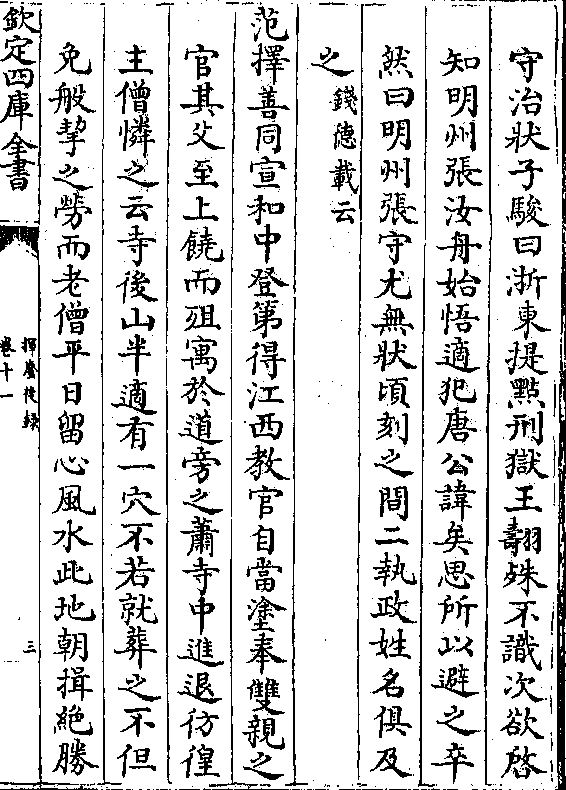 守治狀子駿曰浙東提點刑獄王翿殊不識次欲啓
知明州張汝舟始悟適犯唐公諱矣思所以避之卒
然曰明州張守尤無狀頃刻之間二執政姓名俱及
之錢德載云
范擇善同宣和中登第得江西教官自當塗奉雙親之
官其父至上饒而殂寓於道旁之蕭寺中進退彷徨
主僧憐之云寺後山半適有一穴不若就葬之不但
免般挈之勞而老僧平日留心風水此地朝揖絶勝
欽定四庫全書
揮麈後録
卷十一
三